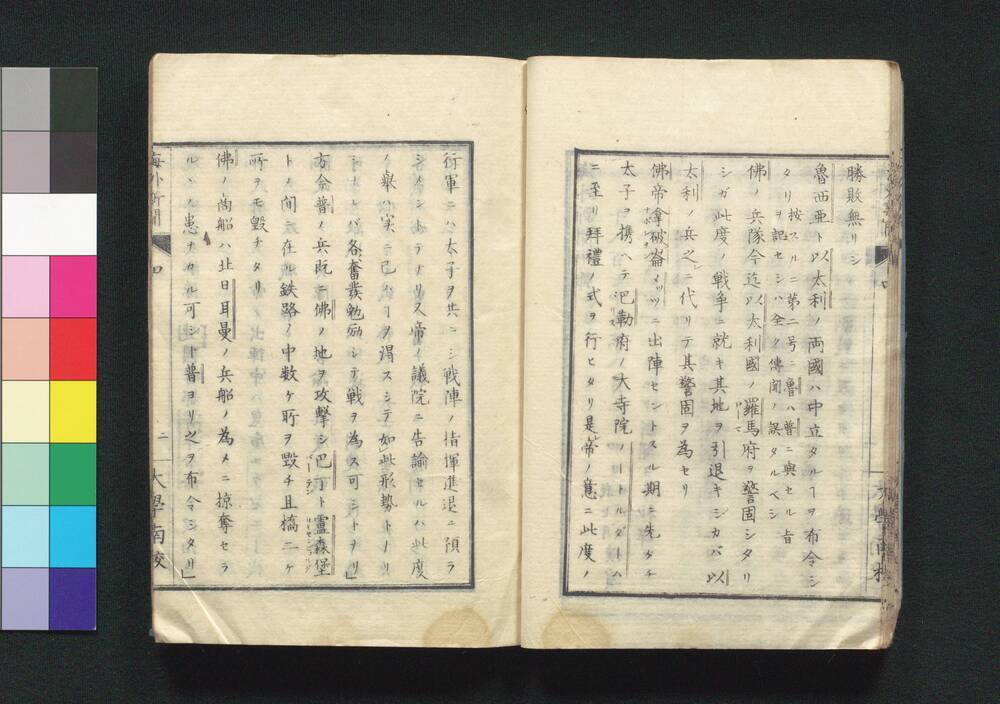 勝敗無リシ
魯西亜ト以太利ノ両國ハ中立タルヿヲ布令シ
タリ 按スルニ第二号ニ魯ハ普ニ與セル旨
ヲ記セシハ全ク傳聞ノ誤タルベシ
佛ノ兵隊今迄以太利國ノ羅馬府ヲ警固シタリ
シガ此度ノ戦争ニ就キ其地ヲ引退キシカバ以
太利ノ兵之ニ代リテ其警固ヲ為セリ
佛帝拿破崙メッツニ出陣セントスル期ニ先タチ
太子ヲ携ヘテ巴勒府ノ大寺院ノートルダームハ
ニ至リ拜禮ノ式ヲ行ヒタリ是帝ノ意ニ此度ノ
行軍ニハ太子ヲ共ニシ戦陣ノ指揮進退ニ預ラ
シメントテナリ又帝ノ議院ニ告諭セルハ此度
ノ舉ハ実ニ已ムヿヲ得スシテ如此形勢トナリ
各奮發勉励シテ戦ヲ為ス可シトナリ
方今普ノ兵既ニ佛ノ地ヲ攻撃シ巴丁ト盧森堡
トノ間ニ在ル鉄路ノ中数ケ所ヲ毀チ且橋二ケ
所ヲモ毀チタリ
佛ノ商船ハ北日耳曼ノ兵船ノ為メニ掠奪セラ
ルヽノ患ナカル可シト普ヨリ之ヲ布令シタリ
海外新聞 四 二 大學南校